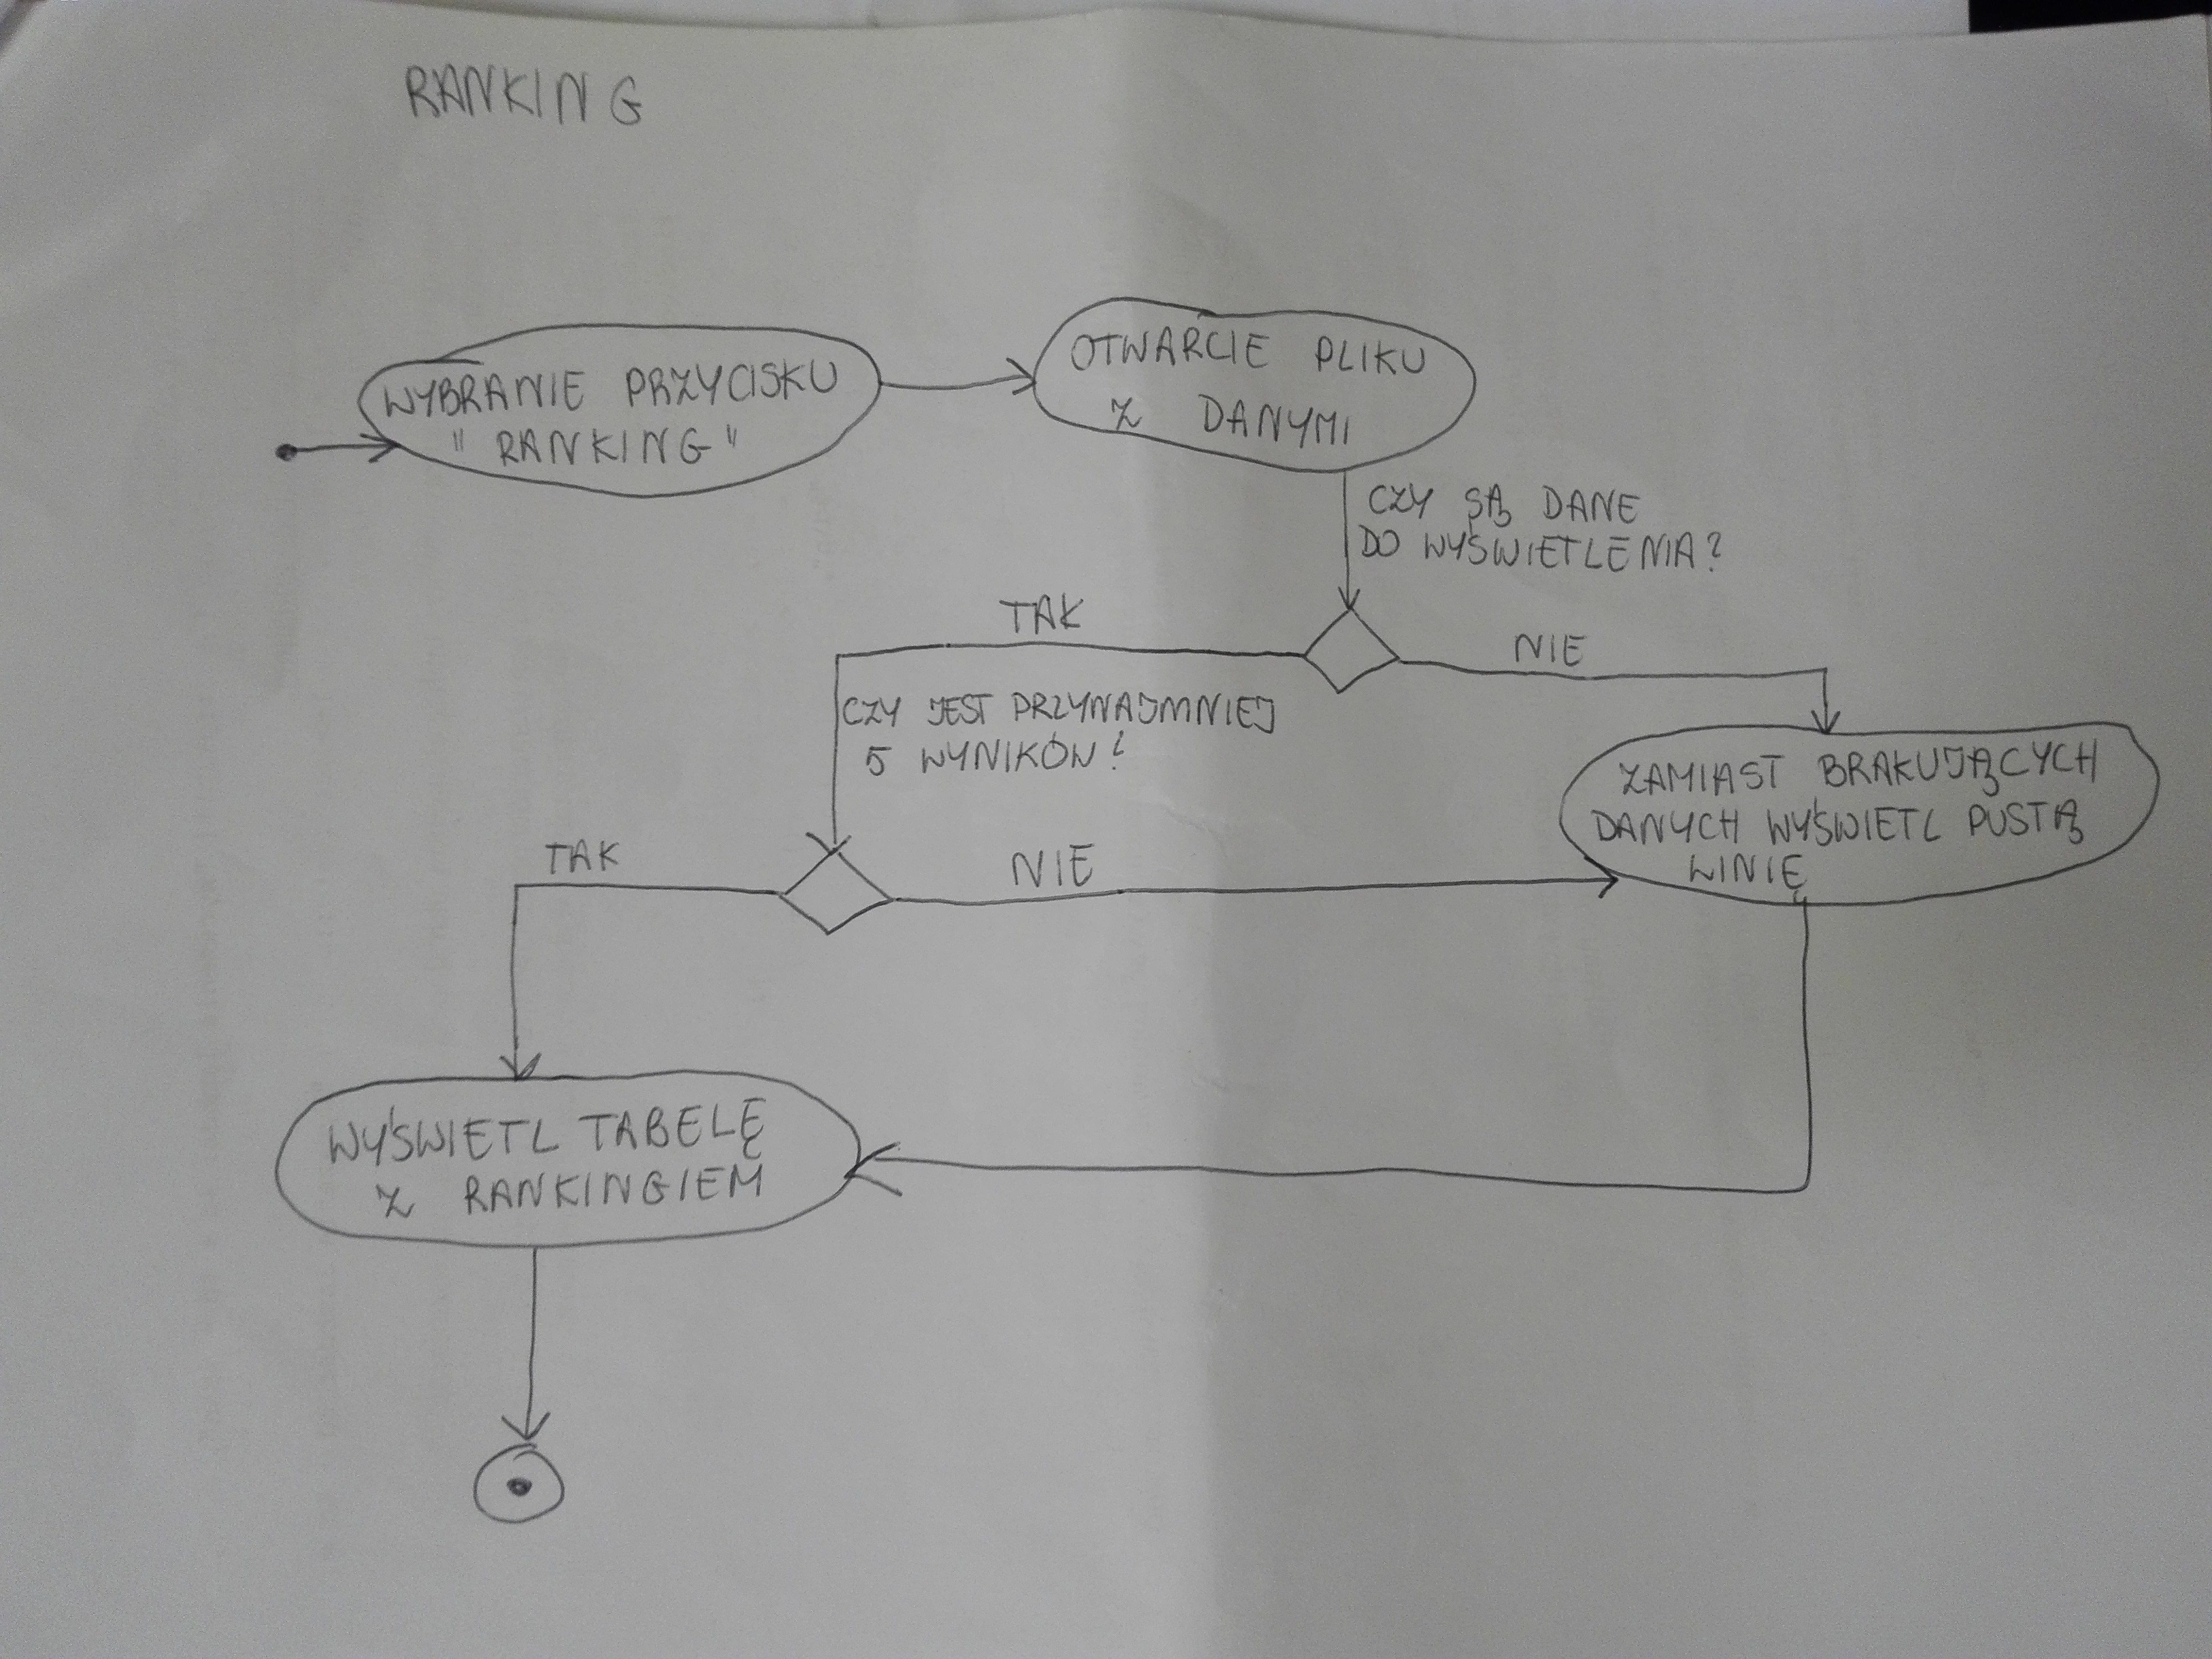 RANKING
WYBRANIE PRZYCISKU
"RANKING"
OTWARCIE PLIKU
Z DANYMI
CZY SĄ DANE
DO WYŚWIETLENIA?
TAK
NIE
CZY JEST PRZYNAJMNIEJ
5 WYNIKÓW?
ZAMIAST BRAKUJĄCYCH
DANYCH WYŚWIETL PUSTĄ
LINIĘ
TAK
NIE
WYŚWIETL TABELĘ
Z RANKINGIEM